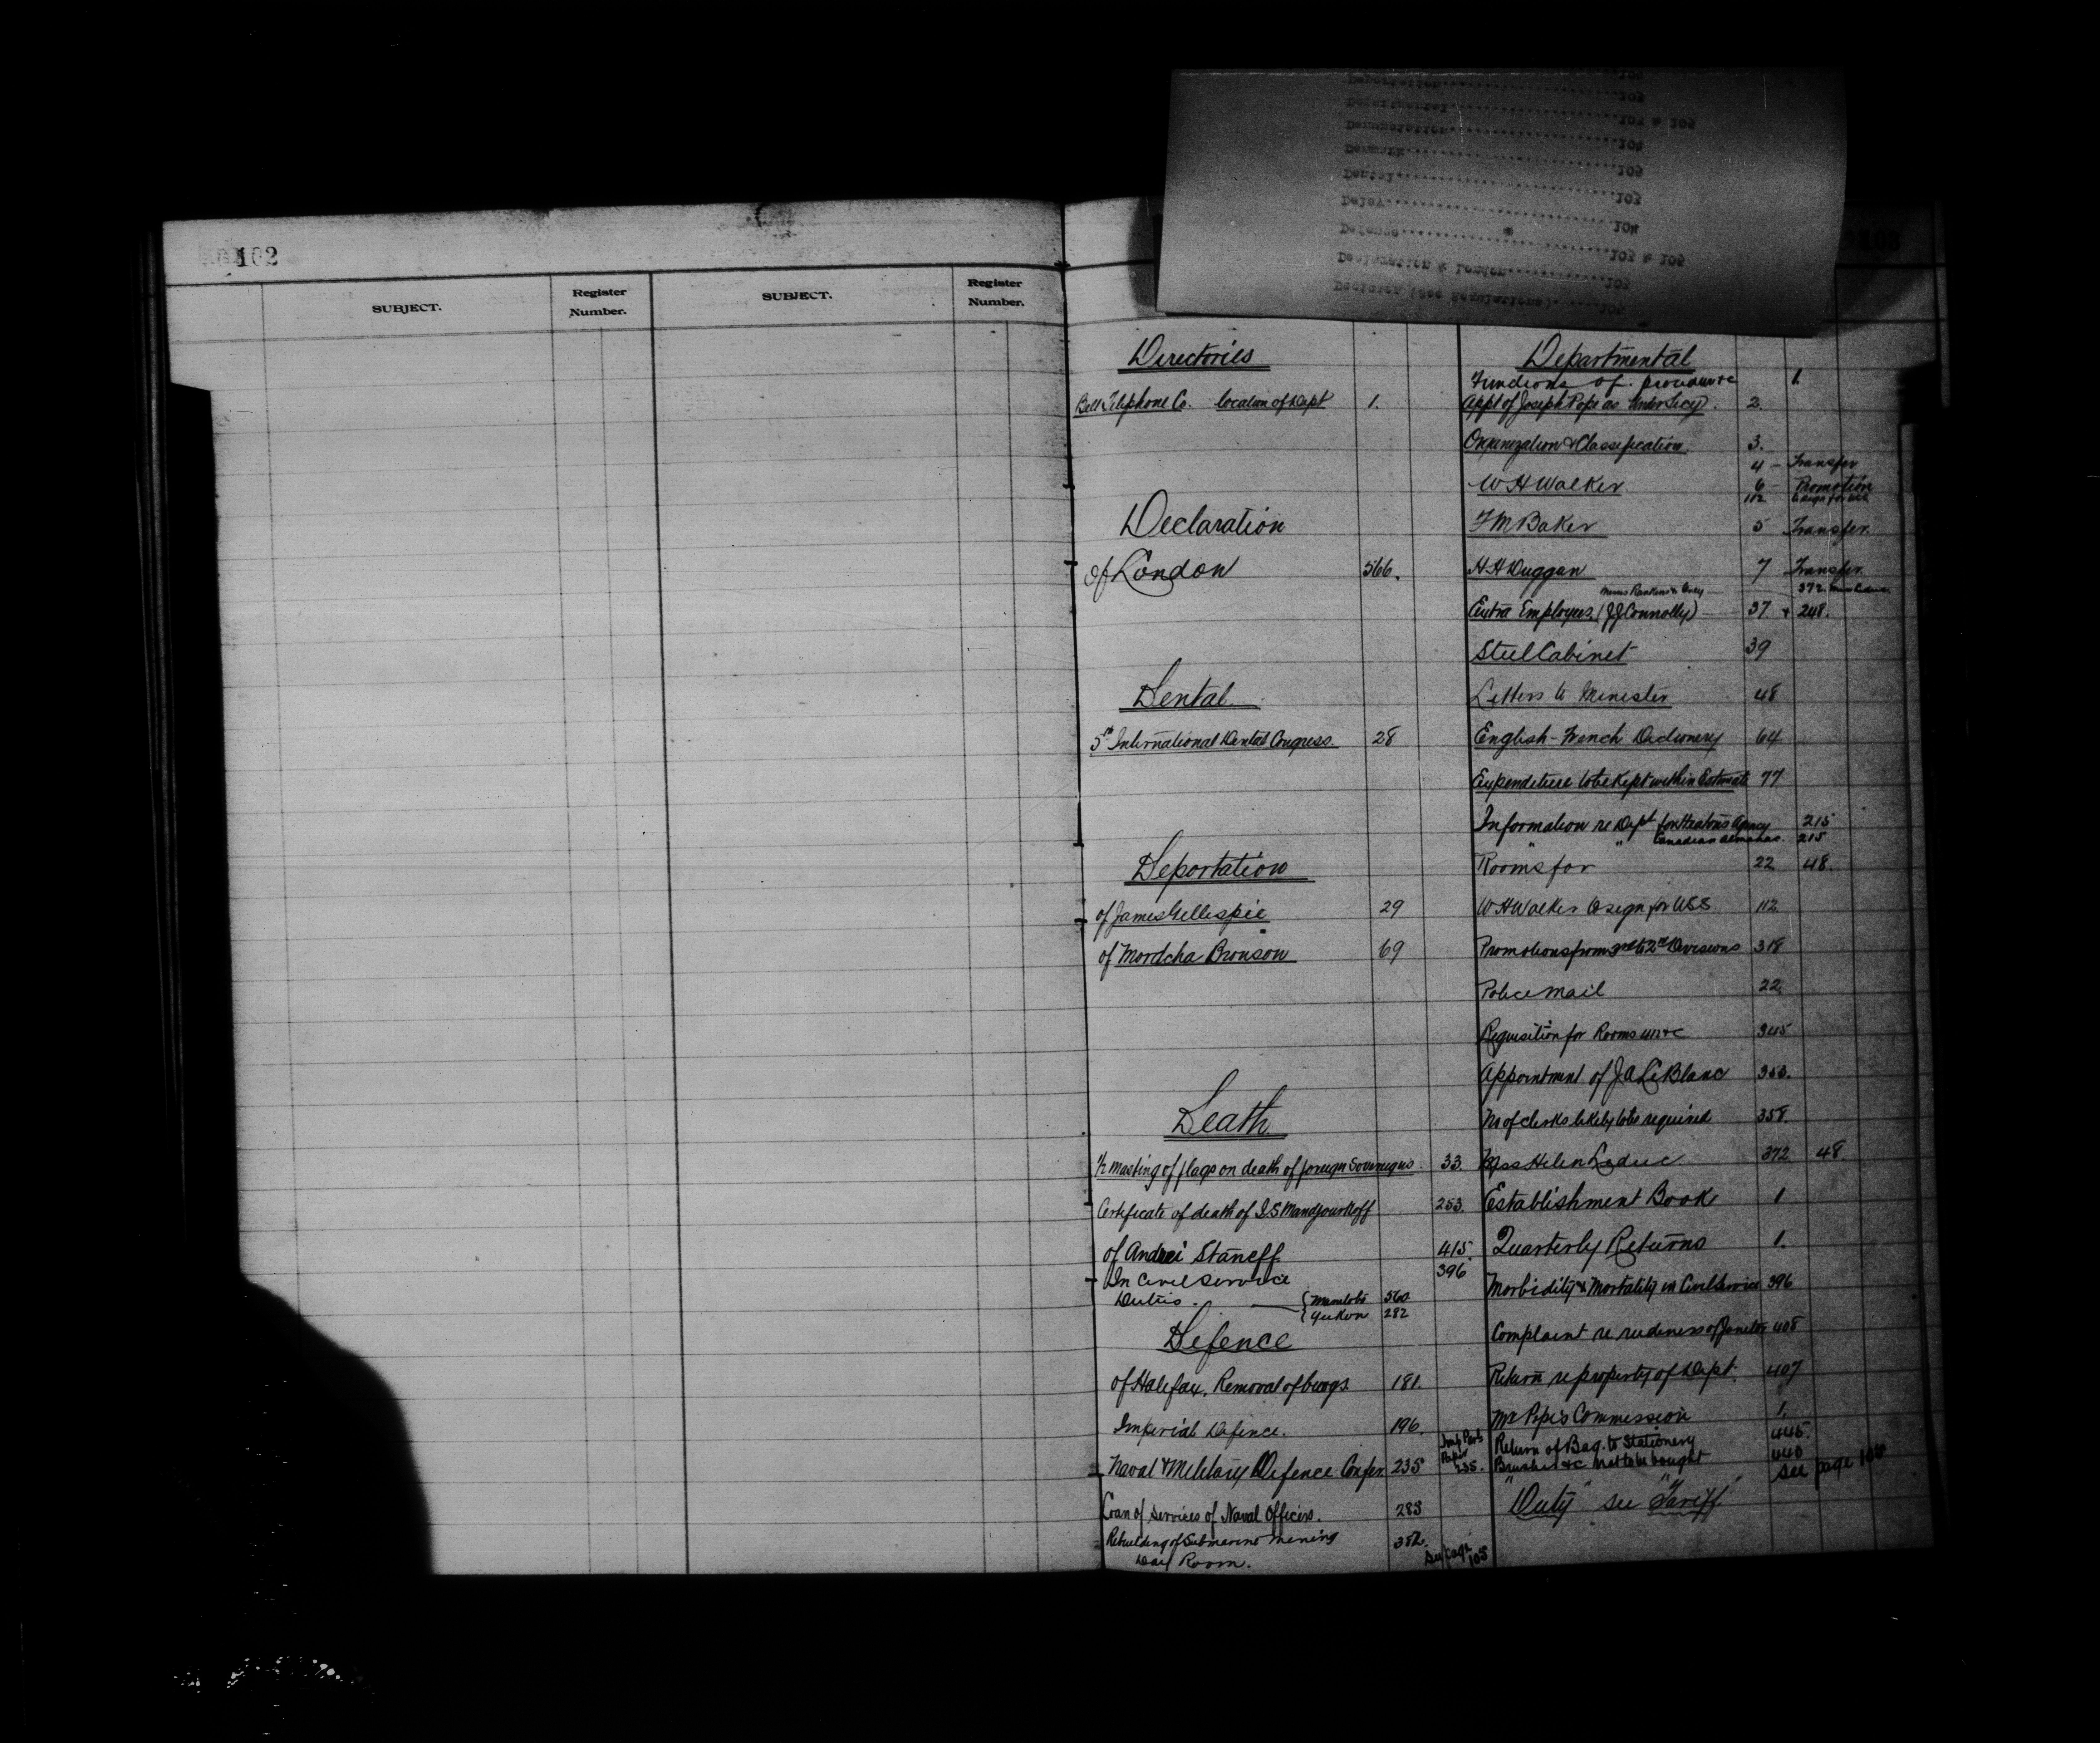 102
SUBJECT.
Register Number.
SUBJECT.
Register Number.
Deportation 103
Departmental 103 & 105
Denunciation 104
Denmark 105
Dental 103
Delay 104
Defence 103 & 105
Declaration & London 103
Decision (See Regulations) 105
Directories
Bell Telephone Co. location of Dept 1.
Declaration
of London 566.
Dental
5th International Dental Congress. 28
Deportation
of James Gillespie 29
of Mordcha Bronson 69
Death
1/2 masting of flags on death of foreign Sovereigns. 33.
Certificate of death of I.S Mandjourkoff 253.
of Andrei Staneff 415.
In Civil Service 396
Duties. { Manitoba 560
{ Yukon 282
Defence
of Halifax. Removal of bldgs. 181.
Imperial Defence. 196.
Naval & Military Defence Confer. 235 Paper 235.
Loan of services of Naval Officers. 283
Rebuilding of Submarine Mining 382.
Room. See page 105
Departmental
Functions of. procedure &c 1.
Appt of Joseph Pope as Under Secy. 2.
Organization & Classification. 3.
W H Walker 4 - Transfer
6 - Promotion
112
F M Baker 5 Transfer.
H H Duggan 7 Transfer.
Extra Employees. (J J Connolly) 37 + 248.
Steel Cabinet 39
Letters to Minister 48
English-French Dictionary 64
Expenditure to be Kept within Estimate 77
Information re Dept for Heatons Agency 215
" " Canadian Almanac. 215
Rooms for 22 48.
W H Walker to sign for USS. 112
Promotions from 3rd to 2nd Divisions 318
Police Mail 22.
Requisition for Rooms &c 345
Appointment of J A LeBlanc 353.
No of clerks likely to be required 358.
Miss Helen Leduc 372 48
Establishment Book 1
Quarterly Returns 1.
Morbidity & Mortality in Civil Service 396
Complaint re rudeness of Janitor 408
Return re property of Dept. 407
Mr Pope's Commission 1.
Return of Bag. to Stationery 445.
Brushes &c not to be bought 440
See page 105
"Duty" see "Tariff"